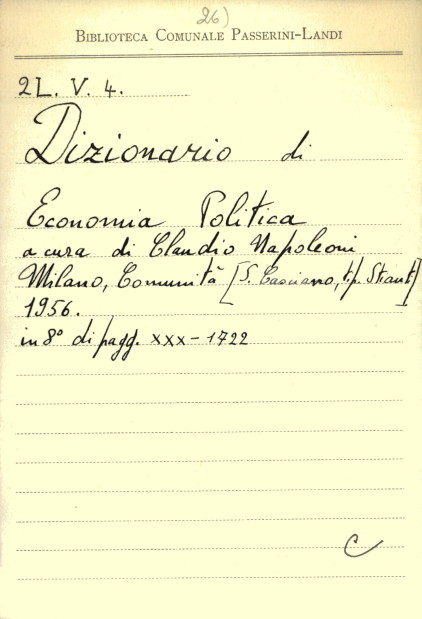 26)
BIBLIOTECA COMUNALE PASSERINI-LANDI
2L. V. 4.
Dizionario di
Economia Politica
a cura di Claudio Napoleoni
Milano, Comunità [S. Casciano, tip. Stianti]
1956.
in 8° di pagg. XXX-1722
C